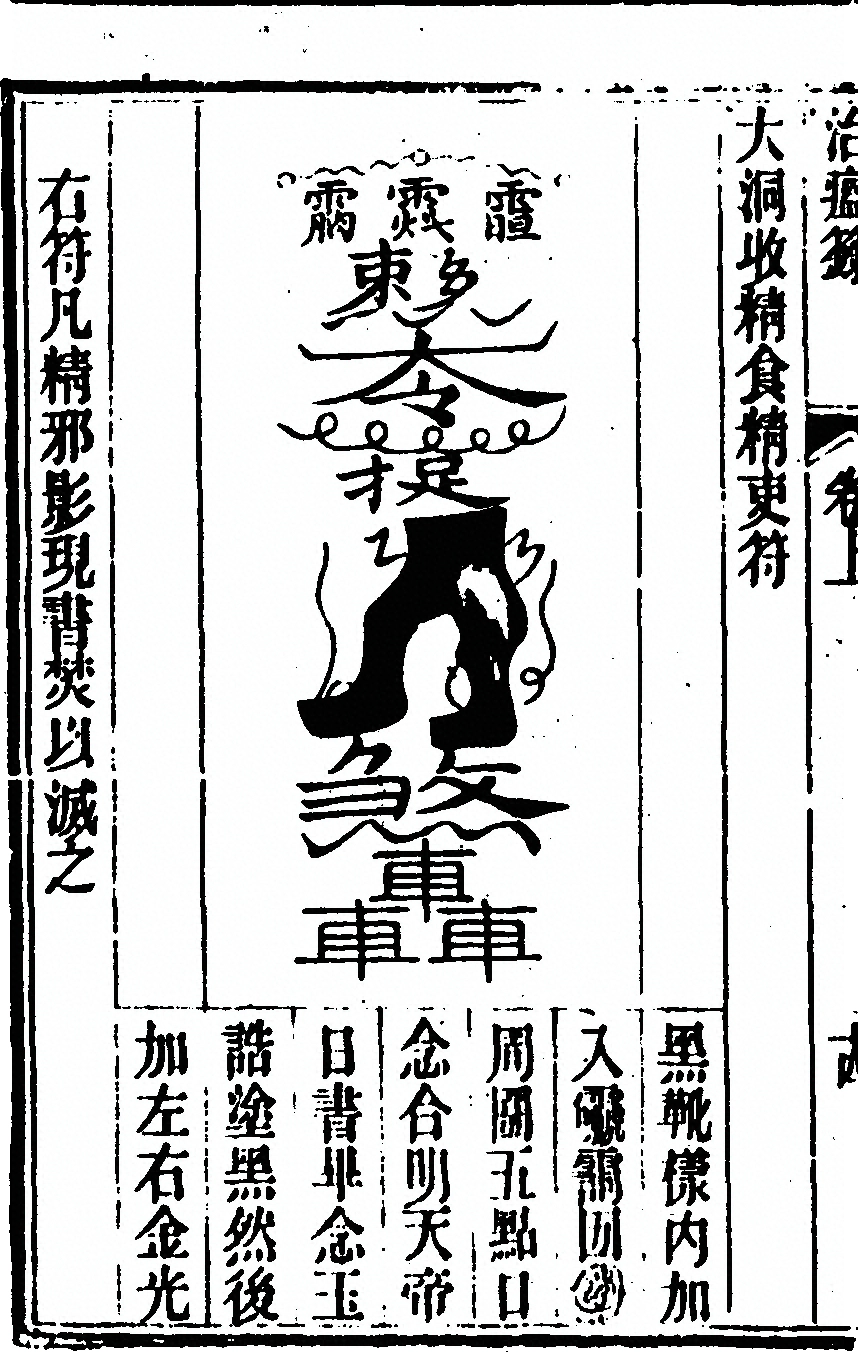 治瘟
卷上
大洞收精食精吏符
敕
大
捉
煞
車
車車
黑靴樣内加
入
周圍五點口
念合明天帝
日書畢念玉
誥塗黑然後
加左右金光
右符凡精邪影現書焚以滅之